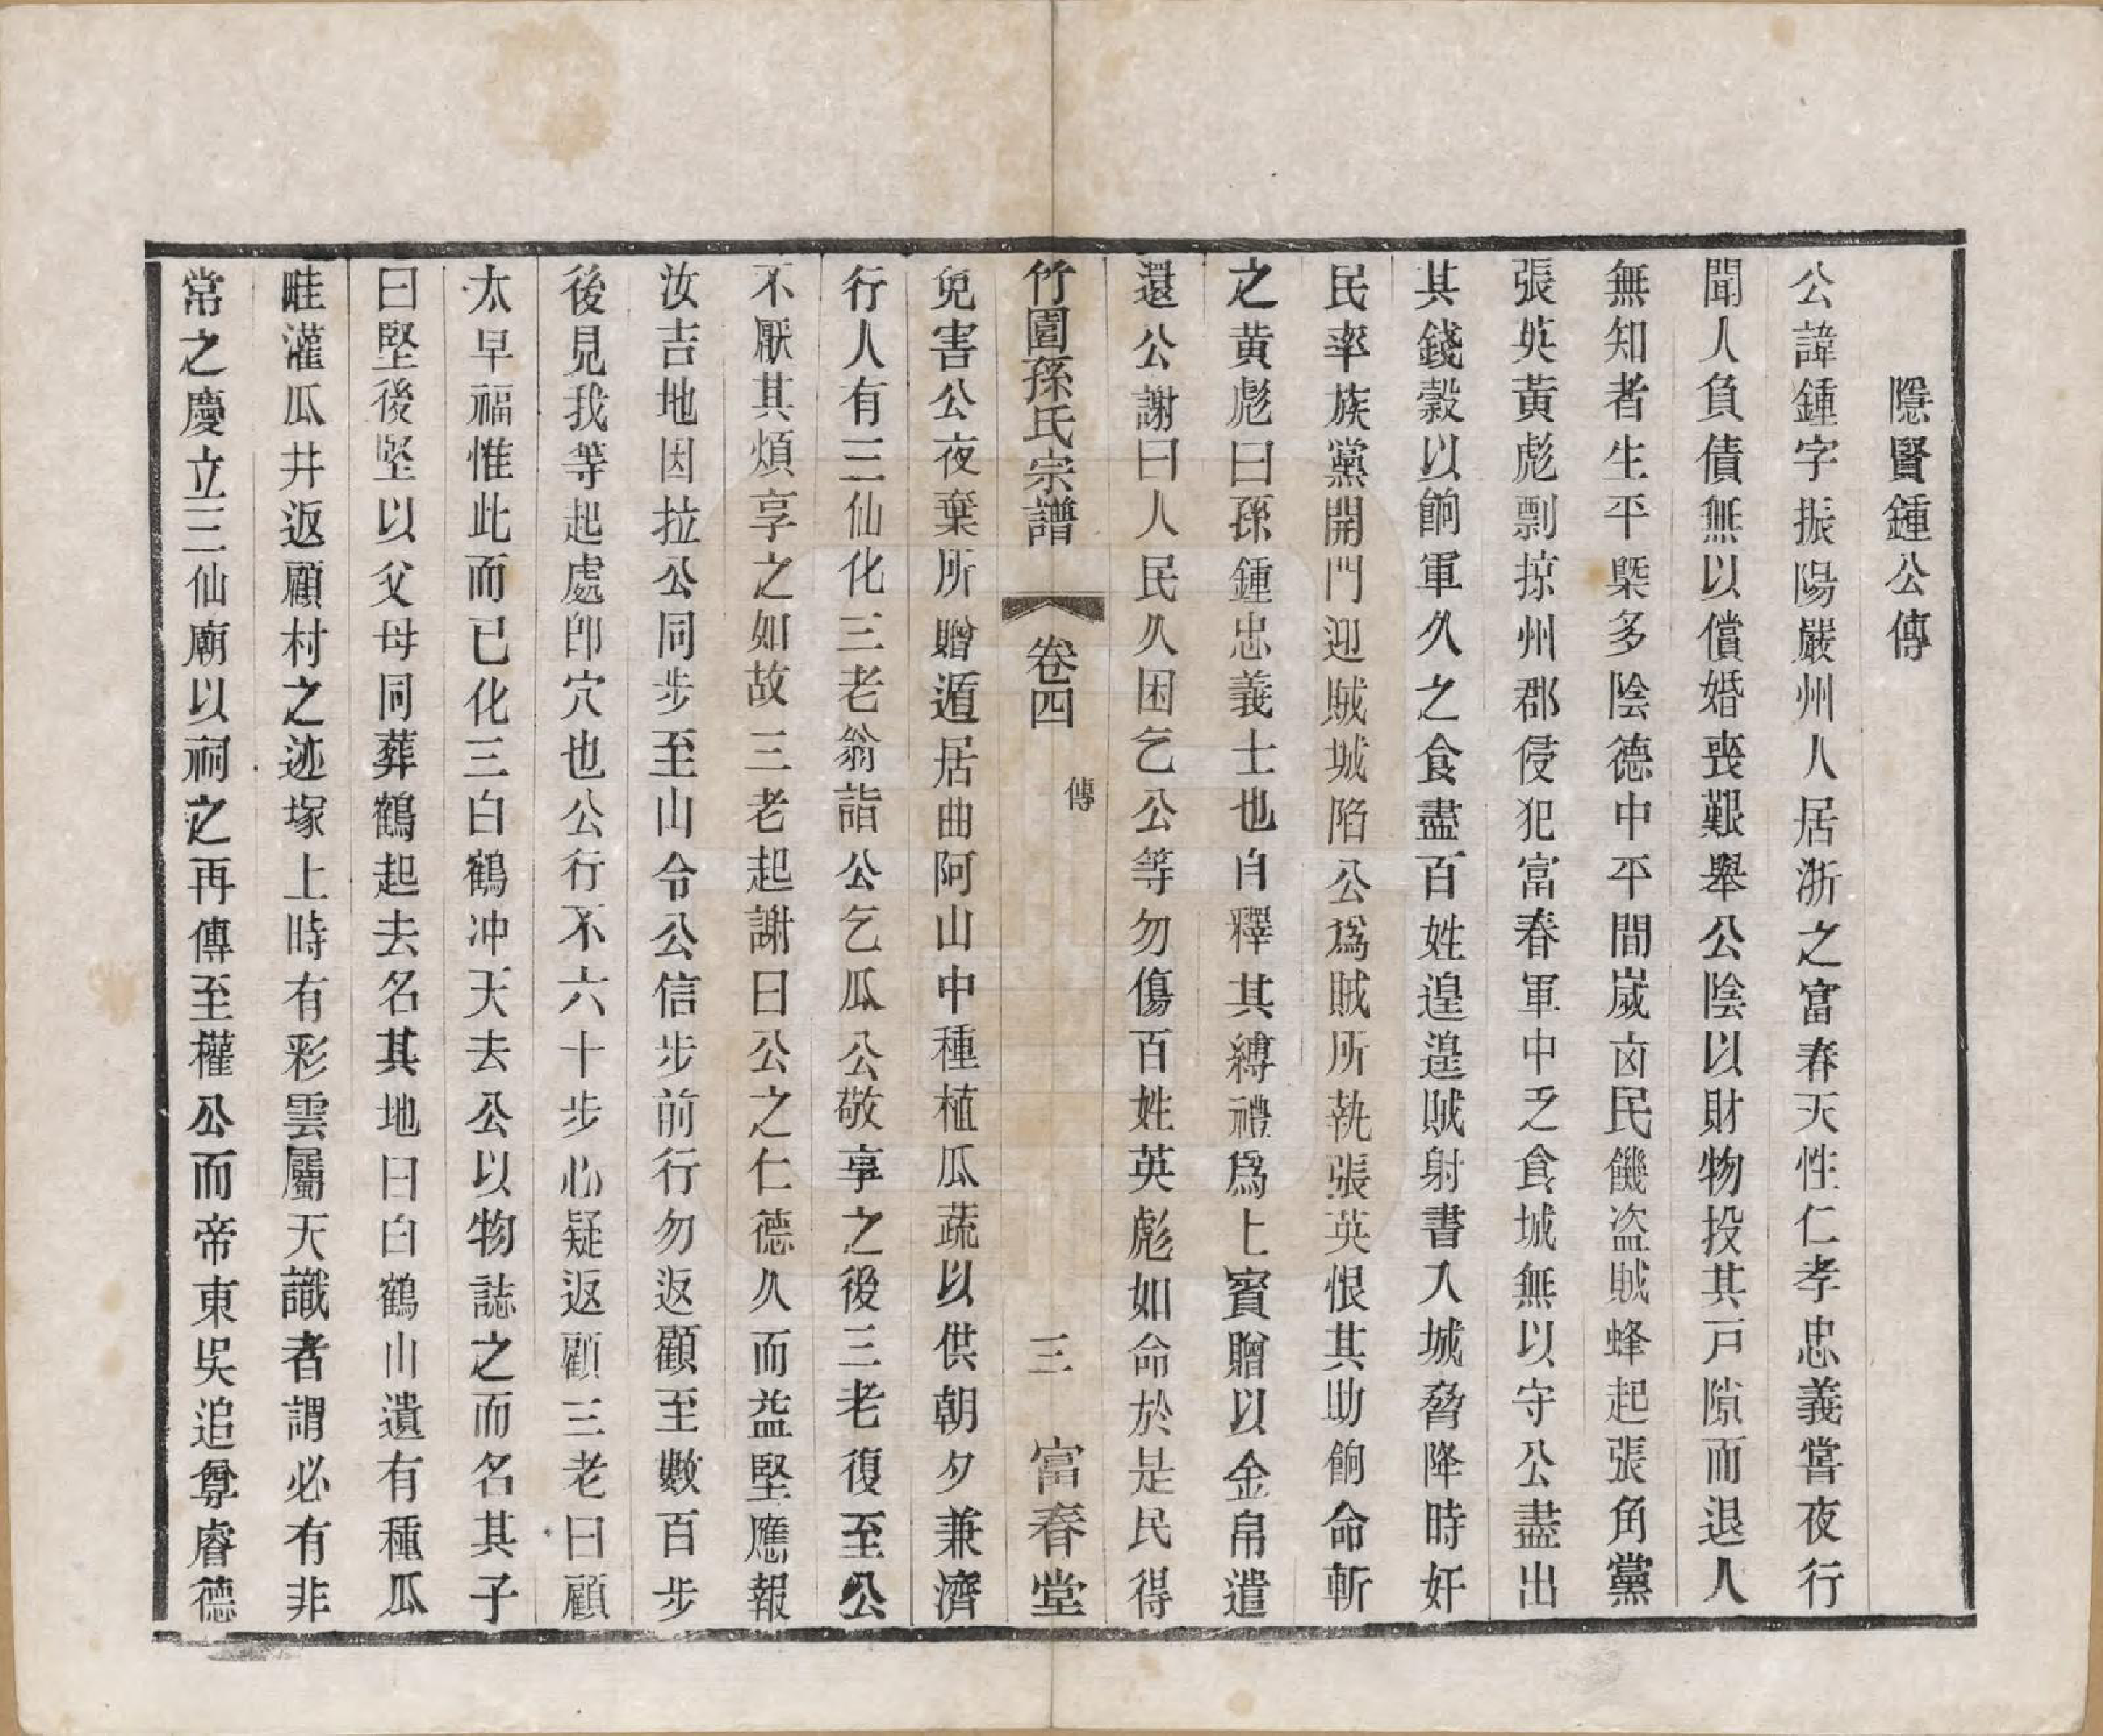 隱賢鍾公傳
公諱鍾字振陽嚴州人居浙之富春天性仁孝忠義嘗夜行
聞人負債無以償婚喪艱舉公陰以財物投其戸隙而退人
無知者生平槩多陰德中平間嵗㐫民饑盗賊蜂起張角黨
張英黃彪剽掠州郡侵犯富春軍中乏食城無以守公盡出
其錢穀以餉軍久之食盡百姓遑遑賊射書入城脅降時奸
民率族黨開門迎賊城陷公爲賊所執張英恨其助餉命斬
之黄彪曰孫鍾忠義士也自釋其縛禮爲上賓贈以金帛遣
還公謝曰人民久困乞公等勿傷百姓英彪如命於是民得
竹園孫氏宗譜 卷四 傳 三 富春堂
免害公夜棄所贈遁居曲阿山中種植瓜蔬以供朝夕兼濟
行人有三仙化三老翁詣公乞瓜公敬享之後三老復至公
不厭其煩享之如故三老起謝曰公之仁德久而益堅應報
汝吉地因拉公同步至山令公信步前行勿返顧至數百步
後見我等起處卽穴也公行不六十步心疑返顧三老曰顧
太早福惟此而已化三白鶴冲天去公以物誌之而名其子
曰堅後堅以父母同葬鶴起去名其地曰白鶴山遺有種瓜
畦灌瓜井返顧村之迹塚上時有彩雲屬天識者謂必有非
常之慶立三仙廟以祠之再傳至權公而帝東吳追尊睿德